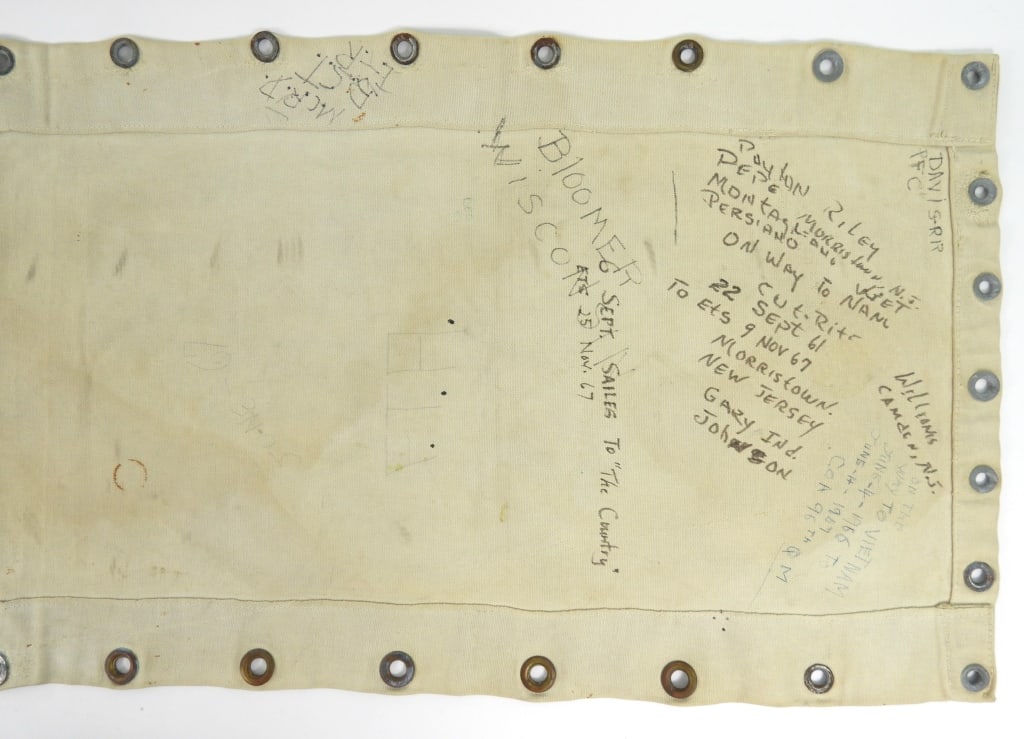 M.C.R.D
BlOOMER
WISCON
6 SEPT. SAILES TO "The Country"
ETS 25 NOV. 67
DAYTON
PEPE RILEY
MONTAGLIANO MORRISTOWN N.J.
PERSIANO VIET
ON WAY TO NAM
22 SEPT 61
TO ETS 9 NOV 67
MORRISTOWN.
NEW JERSEY
GARY Ind.
JOHNSON
DAVIS-RR
PFC
WILLIAMS
CAMDEN, N.J.
ON THE
WAY TO VIETNAM
JUNE-4-1966 TO
JUNE-4-1967
CO A 96TH QM